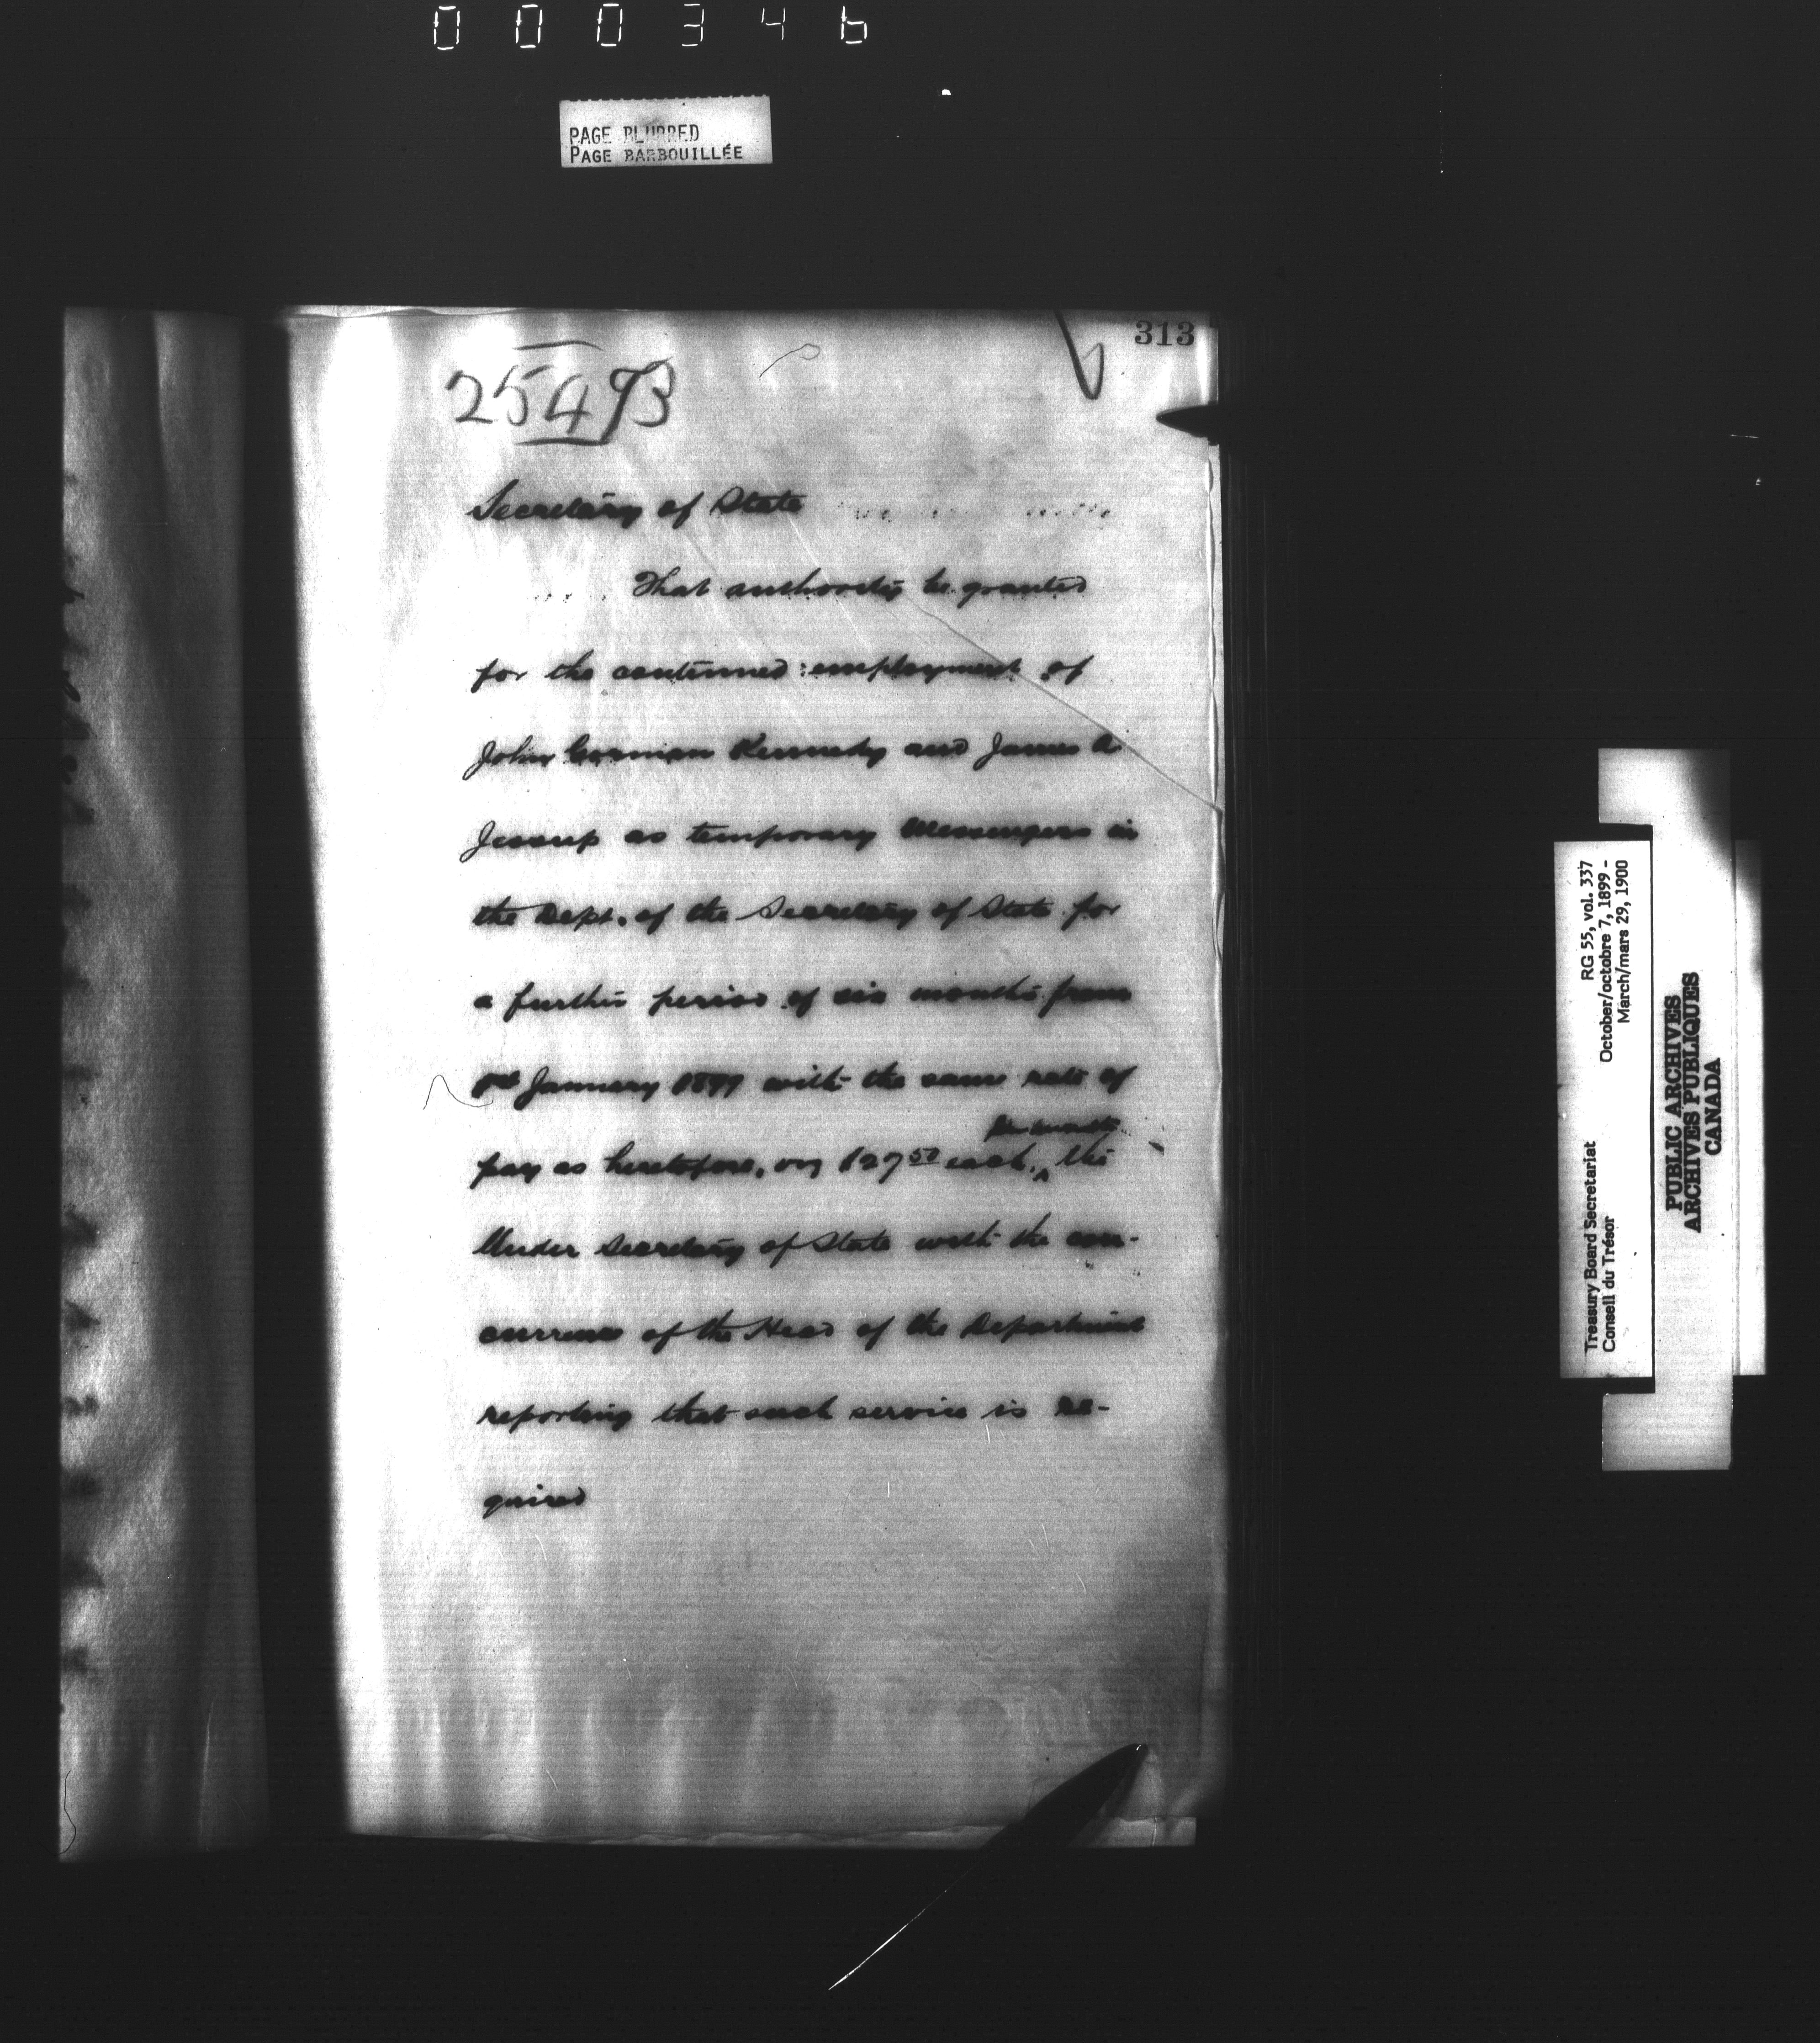 000346
PAGE BLURRED
PAGE BARBOUILLÉE
313
25473
Secretary of State
That authority be granted
for the continued employment of
John Gorman Kennedy and James A
Jessup as temporary Messengers in
the Dept. of the Secretary of State for
a further period of six months from
1st January 1899 with the same rate of
per month
pay as heretofore, viz $27 50 each, ‸ the
Under Secretary of State with the con-
currence of the Head of the Department
reporting that such service is re-
quired
RG 55, vol. 337
October/octobre 7, 1899 -
March/mars 29, 1900
Treasury Board Secretariat
Conseil du Trésor
PUBLIC ARCHIVES
ARCHIVES PUBLIQUES
CANADA